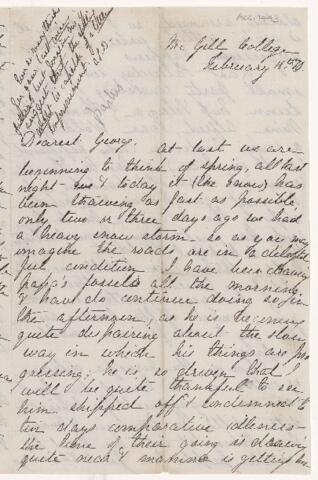 Acc. 1293
McGill College
February 18th 71
Dearest George, at last we are
beginning to think of spring, all last
night & today it (the snow) has
been thawing as fast as possible
only two or three days ago we had
a heavy snow storm so as you may
imagine the roads are in a delight
ful condition I have been drawing
papa's fossils all the morning
& have to continue doing so in
the afternoon as he is becoming
quite despairing about the slow
way in which his things are pro
gressing; he is so driven that I
will be quite thankful to see
him shipped off & condemned to
ten days comparative idleness
the time of their going is drawing
quite near & mamma is getting